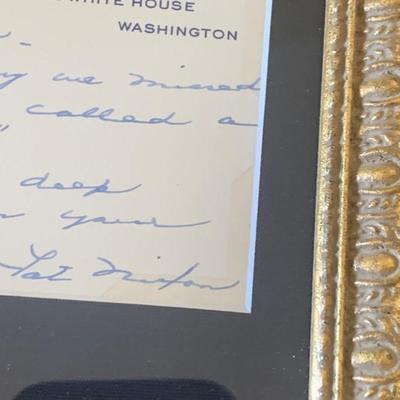 WHITE HOUSE
WASHINGTON
we missed
called a
"
deep
your
Pat Nixon